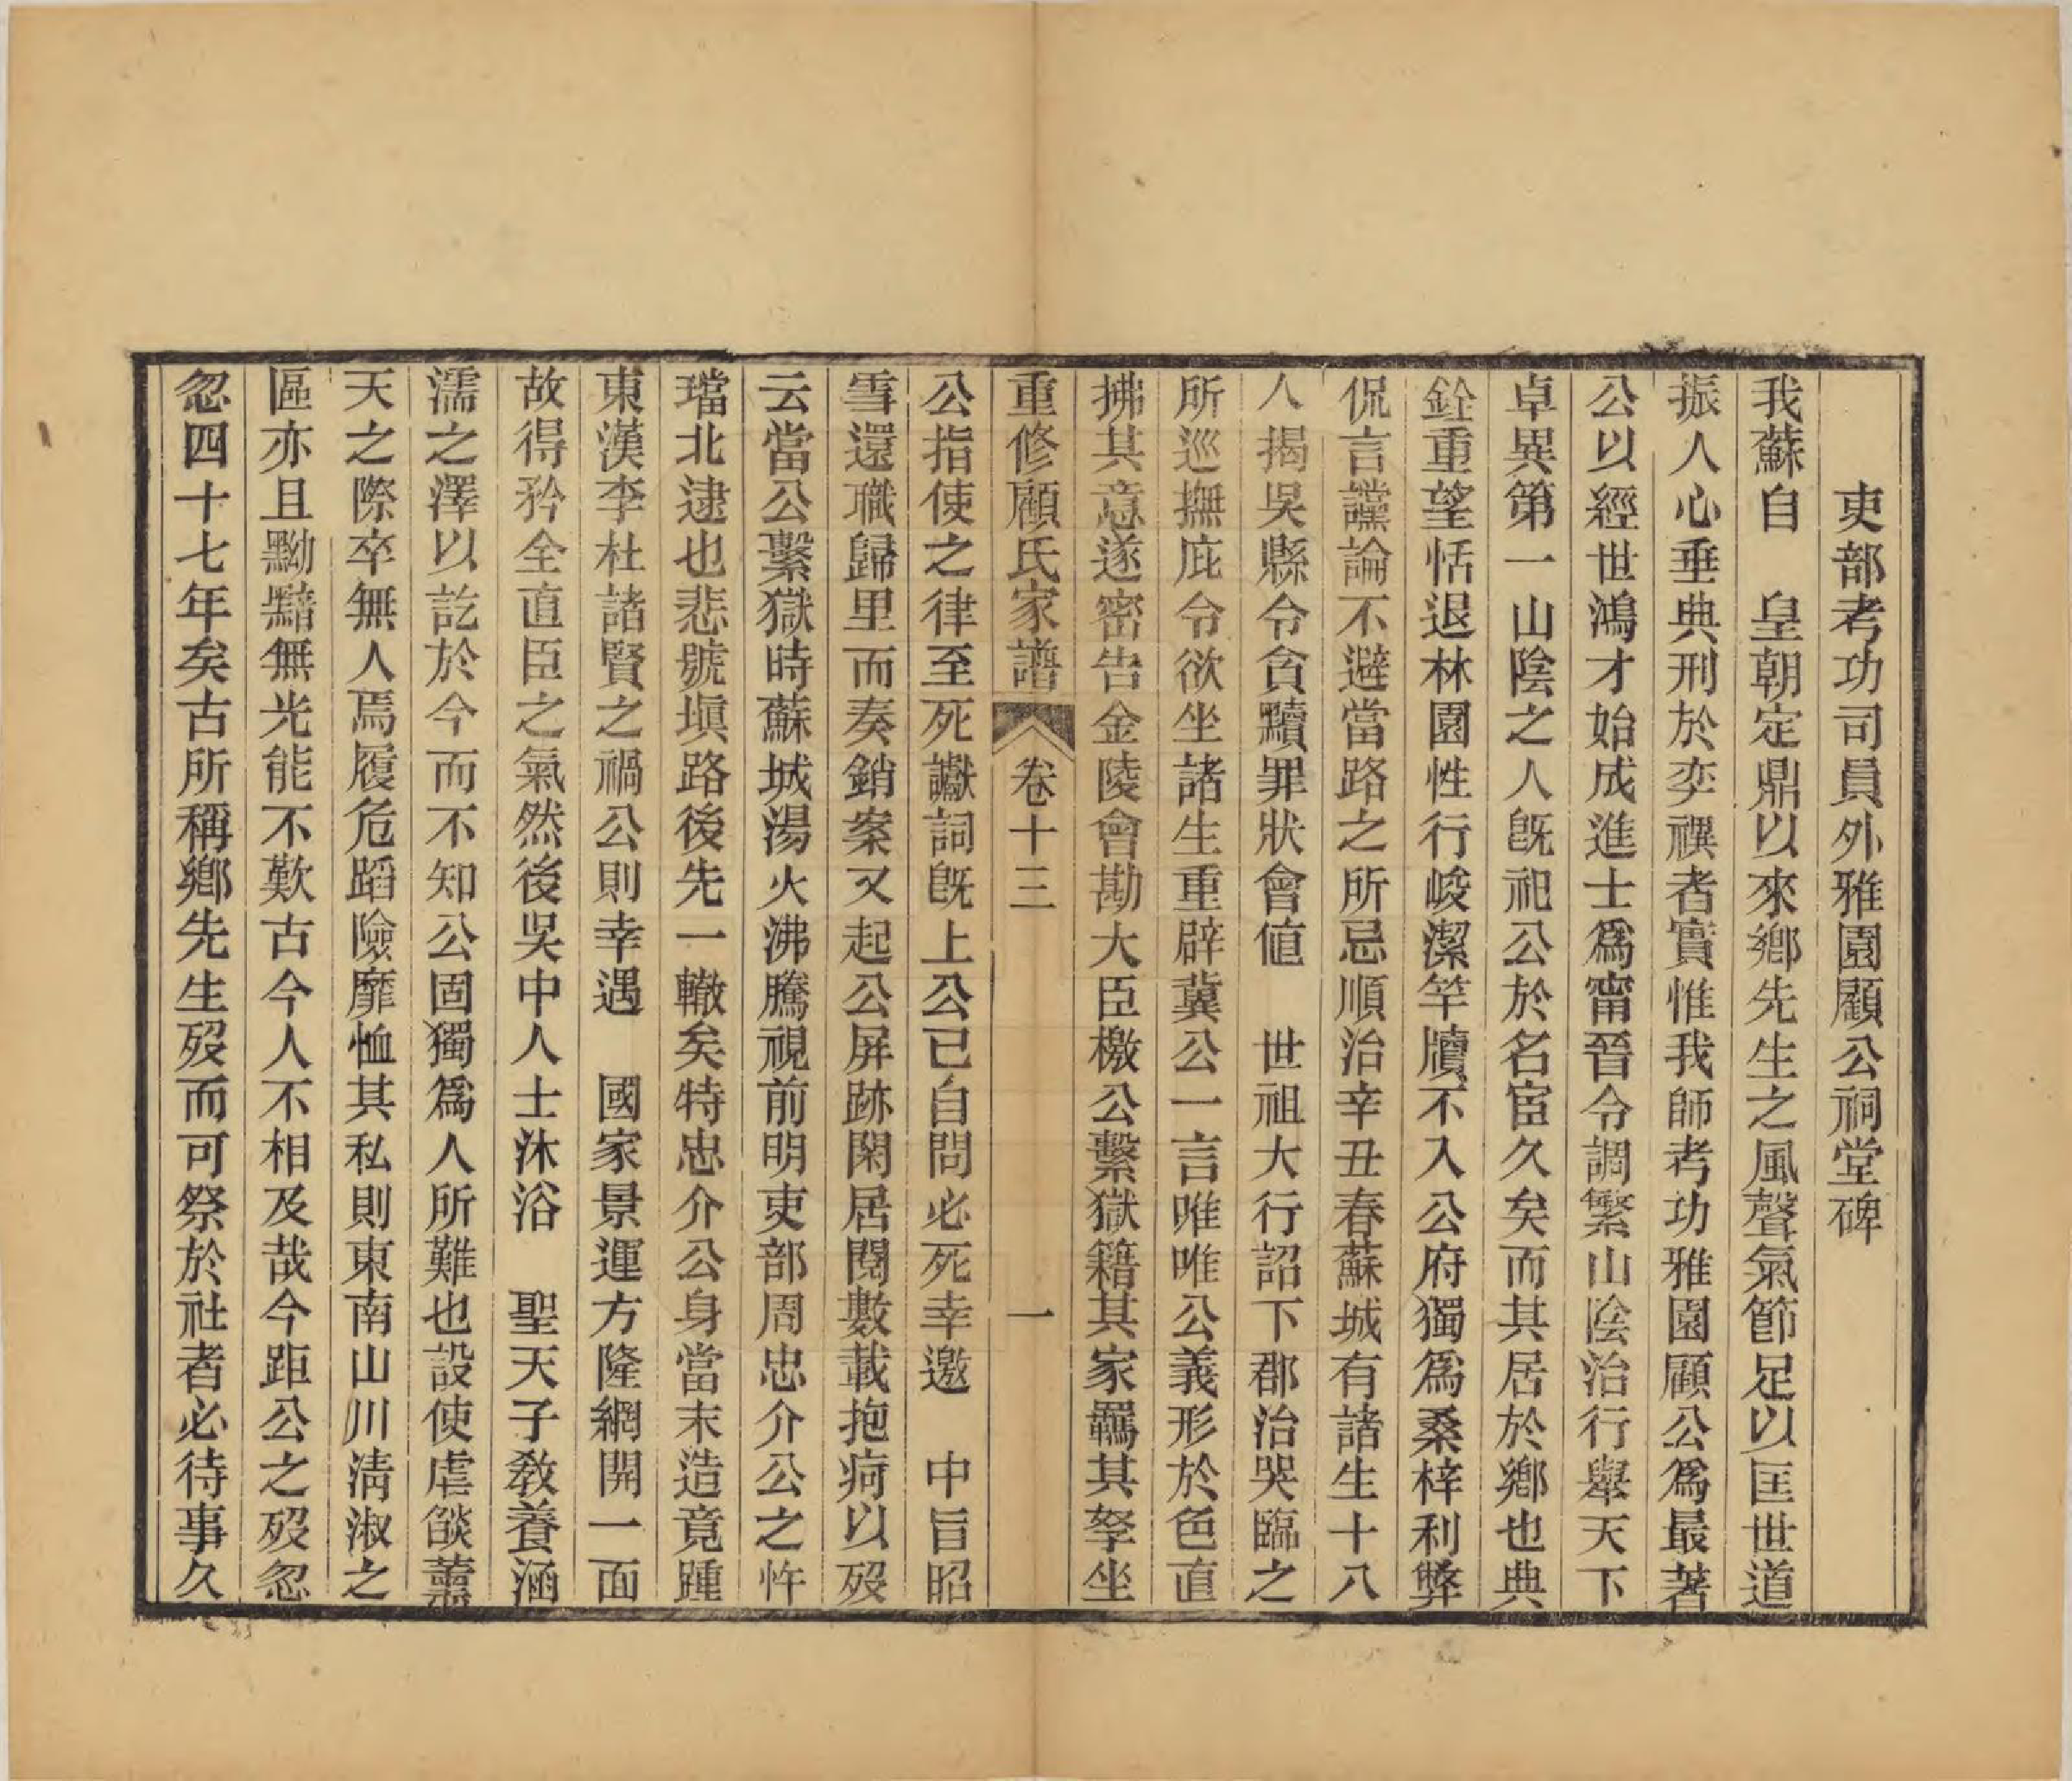 吏部考功司員外雅園顧公祠堂碑
我蘇自　皇朝定鼎以來鄉先生之風聲氣節足以匡世道
振人心垂典刑於奕禩者實惟我師考功雅園顧公爲最著
公以經世鴻才始成進士爲甯晉令調繁山陰治行舉天下
卓異第一山陰之人旣祀公於名宦久矣而其居於鄉也典
銓重望恬退林園性行峻潔竿牘不入公府獨爲桑梓利弊
侃言讜論不避當路之所忌順治辛丑春蘇城有諸生十八
人揭吳縣令貪黷罪狀會値　世祖大行詔下郡治哭臨之
所巡撫庇令欲坐諸生重辟冀公一言唯唯公義形於色直
拂其意遂密告金陵會勘大臣檄公繫獄籍其家羈其孥坐
重修顧氏家譜　卷十三　一
公指使之律至死讞詞旣上公已自問必死幸邀　中旨昭
雪還職歸里而奏銷案又起公屏跡閑居閱數載抱痾以歿
云當公繫獄時蘇城湯火沸騰視前明吏部周忠介公之忤
璫北逮也悲號塡路後先一轍矣特忠介公身當末造竟踵
東漢李杜諸賢之禍公則幸遇　國家景運方隆網開一面
故得矜全直臣之氣然後吳中人士沐浴　聖天子敎養涵
濡之澤以訖於今而不知公固獨爲人所難也設使虐燄薰
天之際卒無人焉履危蹈險靡恤其私則東南山川淸淑之
區亦且黝黯無光能不歎古今人不相及哉今距公之歿忽
忽四十七年矣古所稱鄉先生歿而可祭於社者必待事久